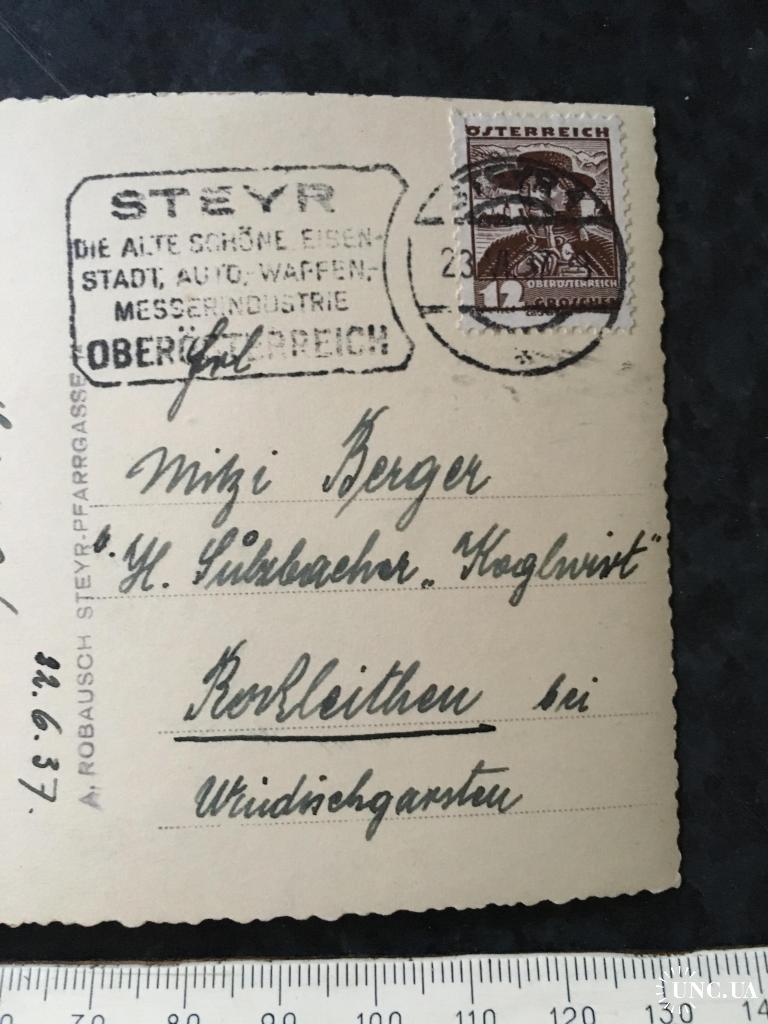 STEYR
DIE ALTE SCHÖNE EISEN-
STADT, AUTO,- WAFFEN,-
MESSERINDUSTRIE
OBERÖSTERREICH
ÖSTERREICH
OBERÖSTERREICH
12 GROSCHEN
23.
Frl
Mitzi Berger
H. Sulzbacher „Koglwirt"
Rosleithen bei
Windischgarsten
A. ROBAUSCH STEYR-PFARRGASSE
22.6.37.
70 80 90 100 110 120 130 14
UNC.UA